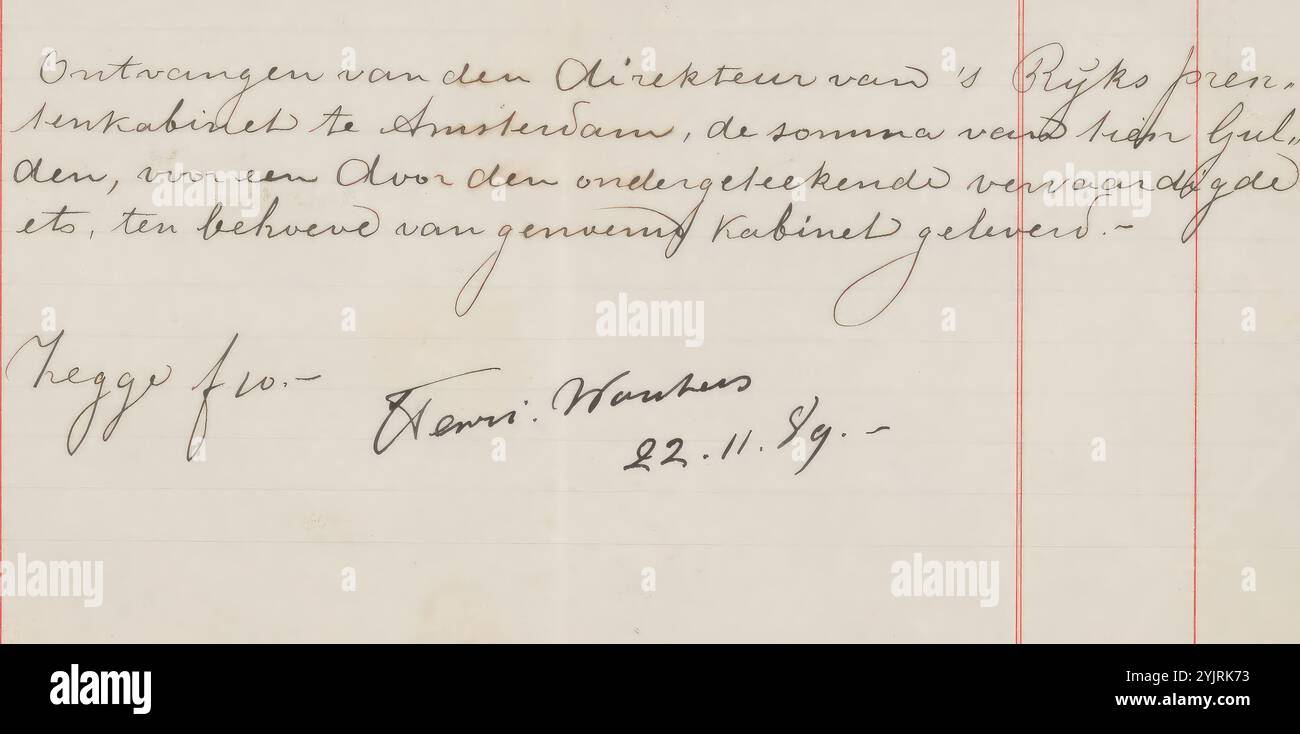 Ontvangen van den Direkteur van 's Ryks pren„
tenkabinet te Amsterdam, de somma van tien Gul„
den, voor een door den ondergeteekende vervaardigde
ets, ten behoeve van genoemd Kabinet geleverd.-
Zegge f 10.-
Henri. Wouters
22.11.89.-
alamy
Image ID: 2YJRK73
www.alamy.com